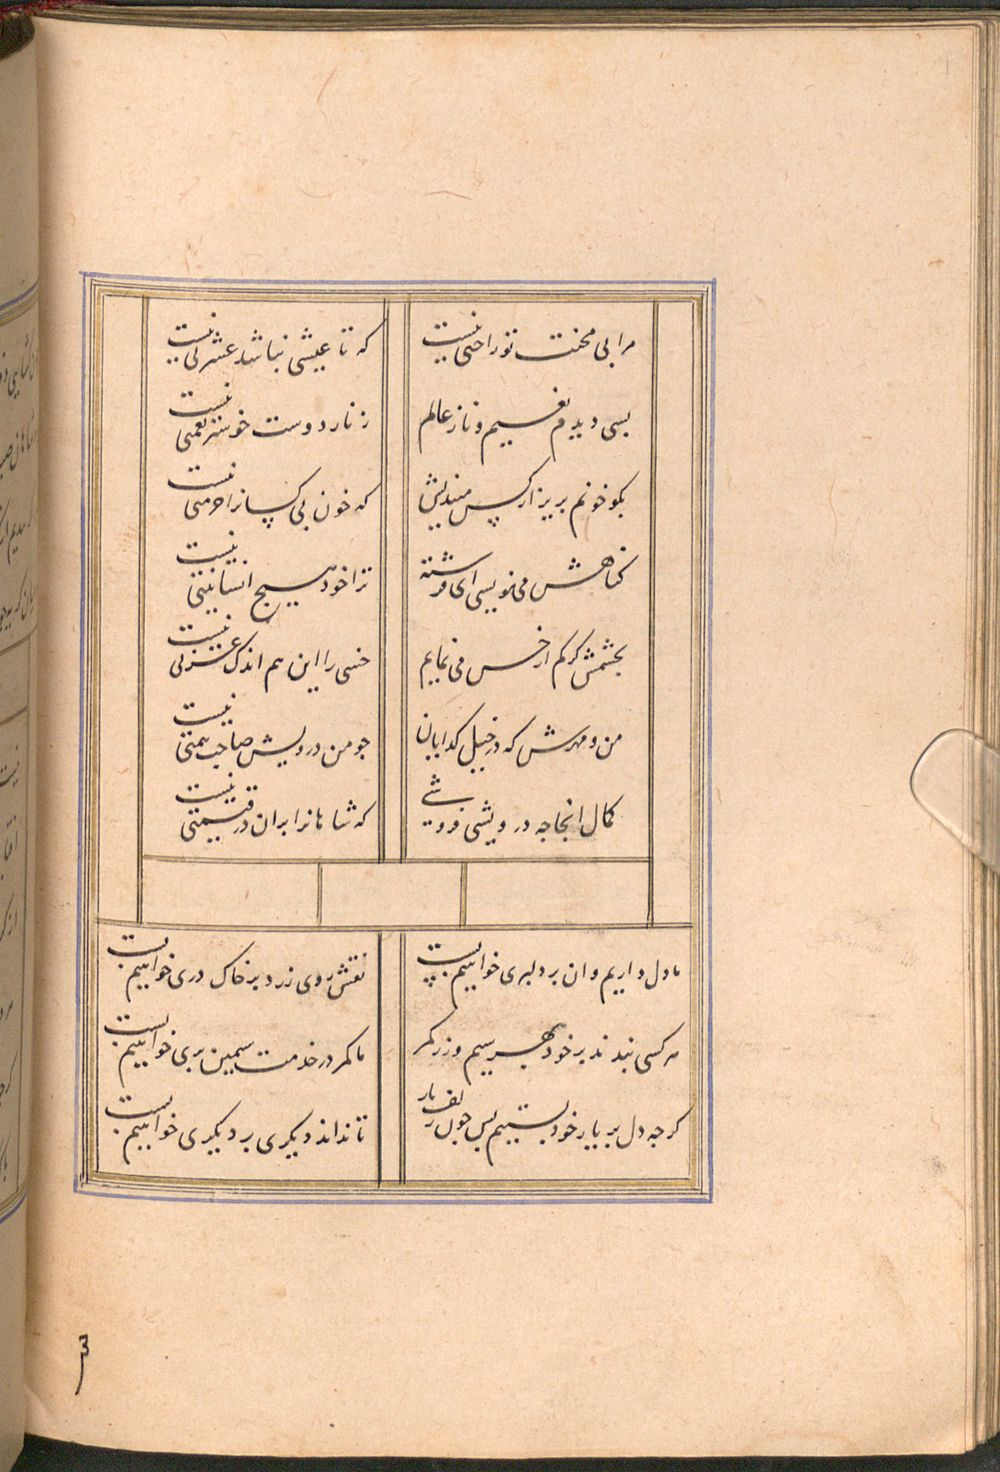 مرا بی محنت تو راحتی نیست
که تا عیشی نباشد عشرتی نیست
بسی دیدم نعیم و ناز عالم
ز نار دوست خوشتر نعمتی نیست
بکو خونم بریز از کس میندیش
که خون بی کسانرا حرمتی نیست
کناهش می نویسی ای فرشته
ترا خود هیچ انسانیتی نیست
بچشمش کر کم از خس می نمایم
خسی را این هم اندک عزتی نیست
من و مهرش که در خیل کدایان
جو من درویش صاحب همتی نیست
کمال انجا جه درویشی فروشی
که شاهانرا بران در قیمتی نیست
ما دل داریم و ان بر دلبری خواهیم بست
نقش روی زرد بر خاک دری خواهیم بست
هر کسی بندند بر خود بهر سیم و زر کمر
ما کمر در خدمت سیمین بری خواهیم بست
کر جه دل بر یار خود بستیم بس جون زلف یار
تا نداند دیکری بر دیکری خواهیم بست